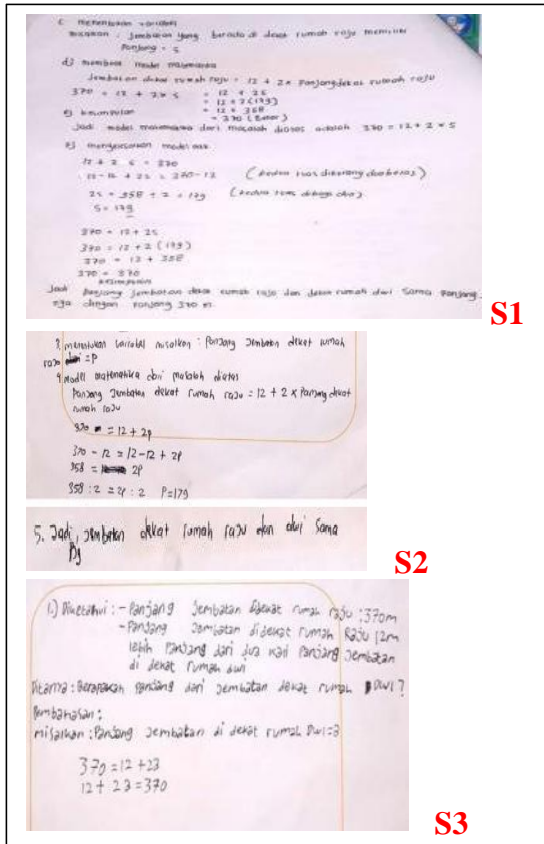 c. menentukan variabel
misalkan : jembatan yang berada di dekat rumah raju memiliki
Panjang = s
d) membuat model matematika
Jembatan dekat rumah raju = 12 + 2 x Panjang dekat rumah raju
370 = 12 + 2 x s = 12 + 2s
= 12 + 2 (179)
= 12 + 358
= 370 (Benar)
e) kesimpulan
Jadi model matematika dari masalah diatas adalah 370 = 12 + 2 x s
12 + 2 s = 370
12 - 12 + 2s = 370 - 12 (kedua ruas dikurang duabelas)
2s = 358 ÷ 2 = 179 (kedua ruas dibagi dua)
s = 179
370 = 12 + 2s
370 = 12 + 2 (179)
370 = 12 + 358
370 = 370
kesimpulan
Jadi Panjang jembatan dekat rumah raju dan dekat rumah dwi sama panjang
nya dengan panjang 370 m
S1
3. menentukan variabel misalkan : Panjang jembatan dekat rumah
raju = P
4. Model matematika dari masalah diatas
Panjang jembatan dekat rumah raju = 12 + 2 x Panjang dekat
rumah raju
370 = 12 + 2P
370 - 12 = 12 - 12 + 2P
358 = 2P
358 : 2 = 2P : 2 P = 179
5. Jadi, jembatan dekat rumah raju dan dwi sama
Pg
S2
1.) Diketahui : - Panjang jembatan didekat rumah raju : 370m
- Panjang jembatan didekat rumah Raju 12m
lebih Panjang dari dua kali Panjang jembatan
di dekat rumah dwi
Ditanya : Berapakah Panjang dari jembatan dekat rumah Dwi ?
Pembahasan :
misalkan : Panjang jembatan di dekat rumah Dwi = a
370 = 12 + 2a
12 + 2a = 370
S3